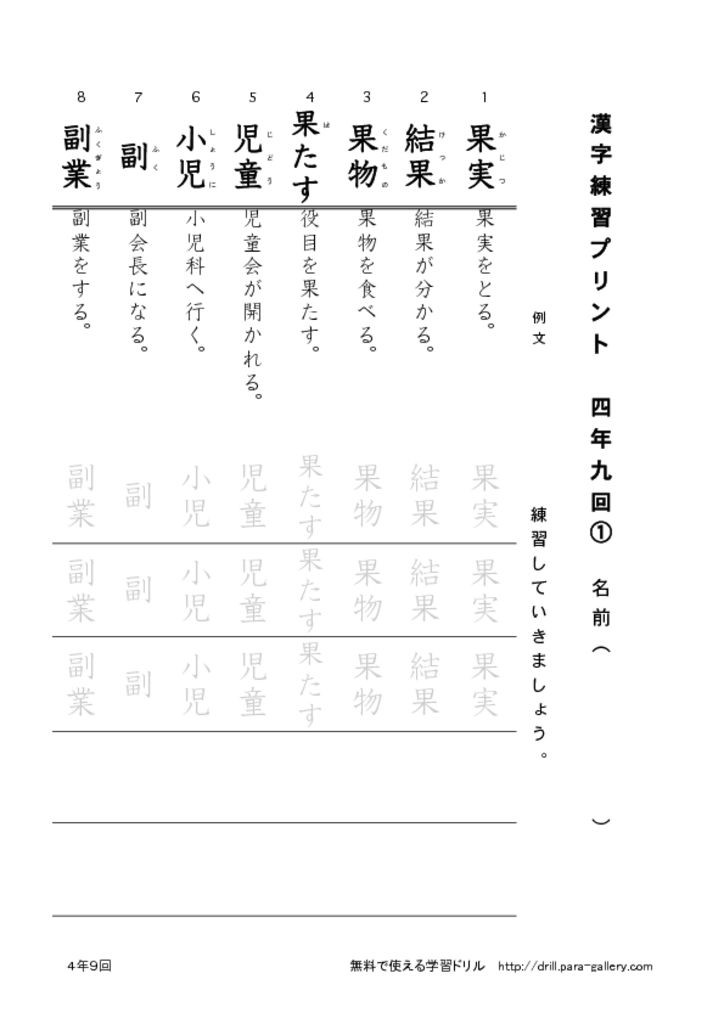 漢字練習プリント　四年九回①　名前（　　　　）
例文
練習していきましょう。
1
果実
かじつ
果実をとる。
果実
果実
果実
2
結果
けっか
結果が分かる。
結果
結果
結果
3
果物
くだもの
果物を食べる。
果物
果物
果物
4
果たす
は
役目を果たす。
果たす
果たす
果たす
5
児童
じどう
児童会が開かれる。
児童
児童
児童
6
小児
しょうに
小児科へ行く。
小児
小児
小児
7
副
ふく
副会長になる。
副
副
副
8
副業
ふくぎょう
副業をする。
副業
副業
副業
4年9回
無料で使える学習ドリル　http://drill.para-gallery.com